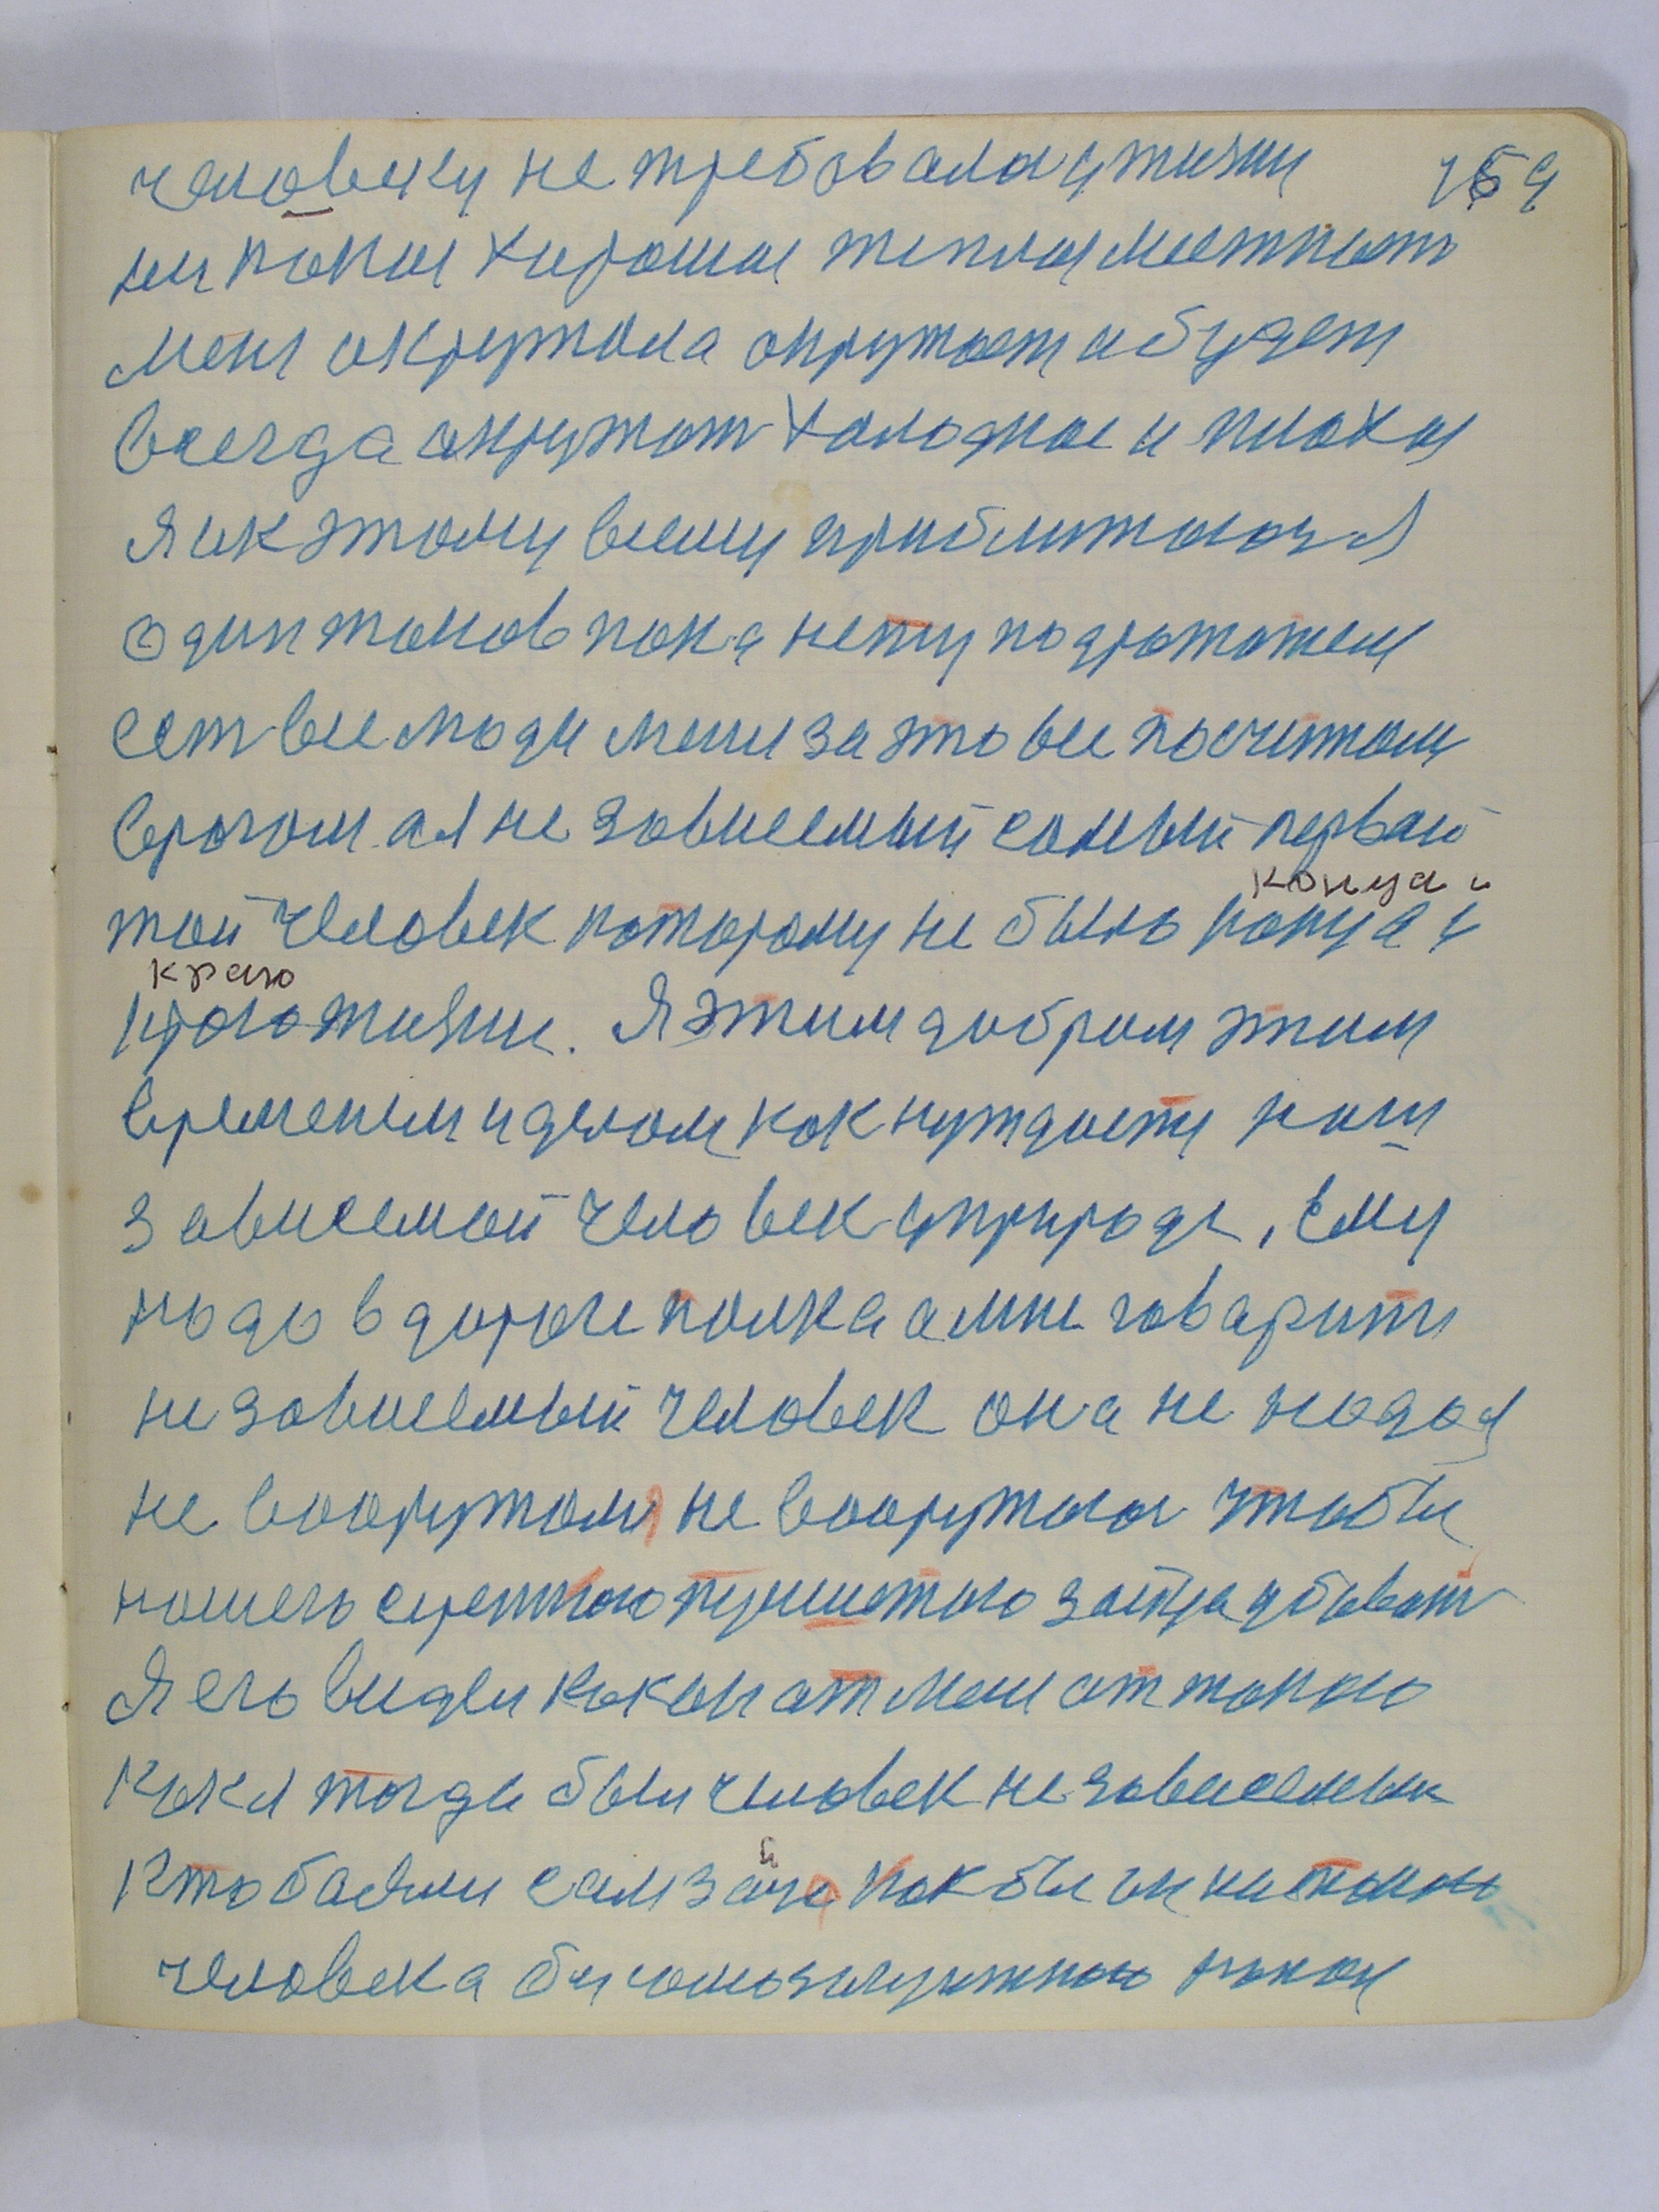 человеку не требовалас у жизни 159
ни какая хорошая теплая местность
меня окружала окружает и будет
всегда окружат холодное и плохая
я и к этому всему приближаюся
один таков пока нету подражателя
ест все люди меня за это все посчитали
врагом а я не зависемый самый первай
той человек которому не было конца и
конца и
краю
краю жизни. Я этим добром этим
временем и делом как нуждаеть наш
зависемой человек у природе, ему
надо в дороге палка а мне говарить
не зависемый человек она не надоя
не вооружался не вооружался чтобы
нашего серенкого пушистого зайца убиват
Я его видел как он от меня
как я тогда был человек не зависемым
Кто боялся сам зайца как бы он на такого
человека бы